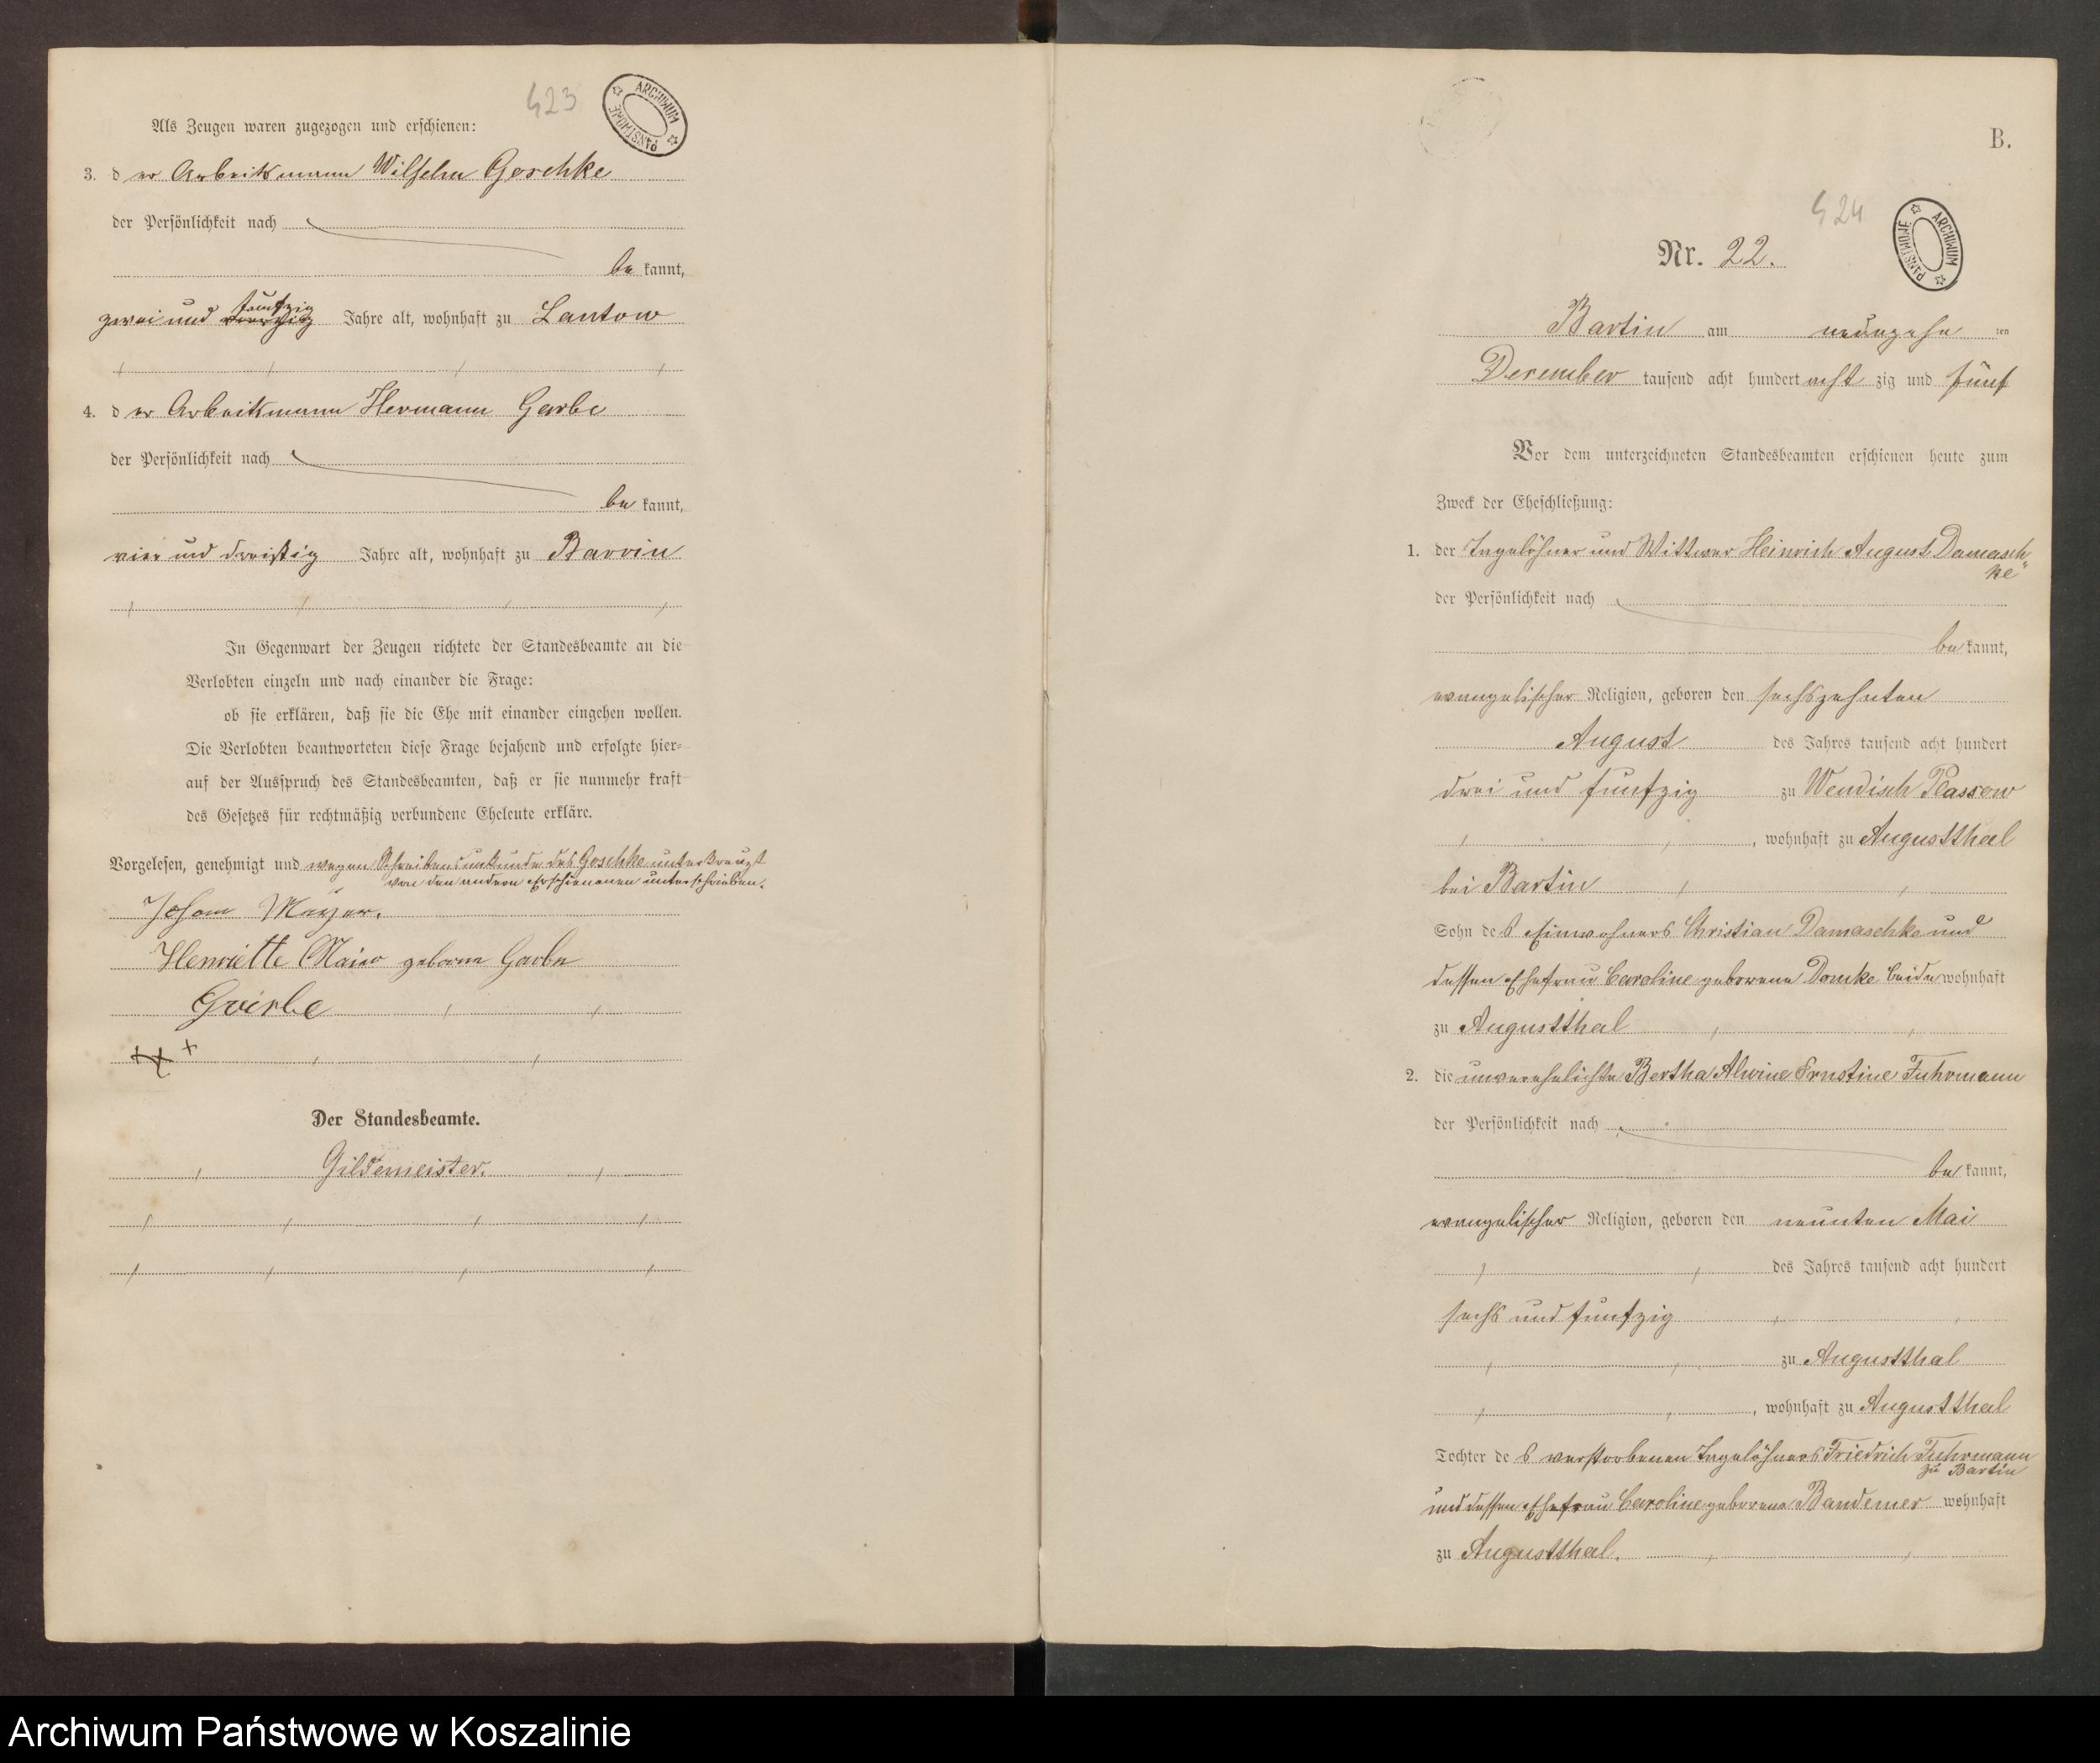 423
ARCHIWUM PAŃSTWOWE
Als Zeugen waren zugezogen und erschienen:
3. der Arbeitsmann Wilhelm Goschke
der Persönlichkeit nach
be kannt,
zwei und fünfzig Jahre alt, wohnhaft zu Lantow
4. der Arbeitsmann Hermann Garbe
der Persönlichkeit nach
be kannt,
vier und dreißig Jahre alt, wohnhaft zu Barvin
In Gegenwart der Zeugen richtete der Standesbeamte an die
Verlobten einzeln und nach einander die Frage:
ob sie erklären, daß sie die Ehe mit einander eingehen wollen.
Die Verlobten beantworteten diese Frage bejahend und erfolgte hier-
auf der Ausspruch des Standesbeamten, daß er sie nunmehr kraft
des Gesetzes für rechtmäßig verbundene Eheleute erkläre.
Vorgelesen, genehmigt und wegen Schreibensunkunde des Goschke unterkreuzt
von den andern Erschienenen unterschrieben.
Johann
Henriette Maier geborne Garbe
Garbe
+++
Der Standesbeamte.
Gildemeister.
B.
424
ARCHIWUM PAŃSTWOWE
Nr. 22.
Bartin am neunzehn ten
December tausend acht hundert acht zig und fünf
Vor dem unterzeichneten Standesbeamten erschienen heute zum
Zweck der Eheschließung:
1. der Tagelöhner und Wittwer Heinrich August Damasch
ke"
der Persönlichkeit nach
be kannt,
evangelischer Religion, geboren den sechszehnten
August des Jahres tausend acht hundert
drei und fünfzig zu Wendisch Plassow
, wohnhaft zu Augustthal
bei Bartin
Sohn des Einwohners Christian Damaschke und
dessen Ehefrau Caroline geborene Domke beide wohnhaft
zu Augustthal
2. die unverehelichte Bertha Alwine Ernstine Fuhrmann
der Persönlichkeit nach
be kannt,
evangelischer Religion, geboren den neunten Mai
des Jahres tausend acht hundert
sechs und fünfzig
zu Augustthal
, wohnhaft zu Augustthal
Tochter des verstorbenen Tagelöhners Friedrich Fuhrmann
zu Bartin
und dessen Ehefrau Caroline geborene Bandemer wohnhaft
zu Augustthal.
Archiwum Państwowe w Koszalinie